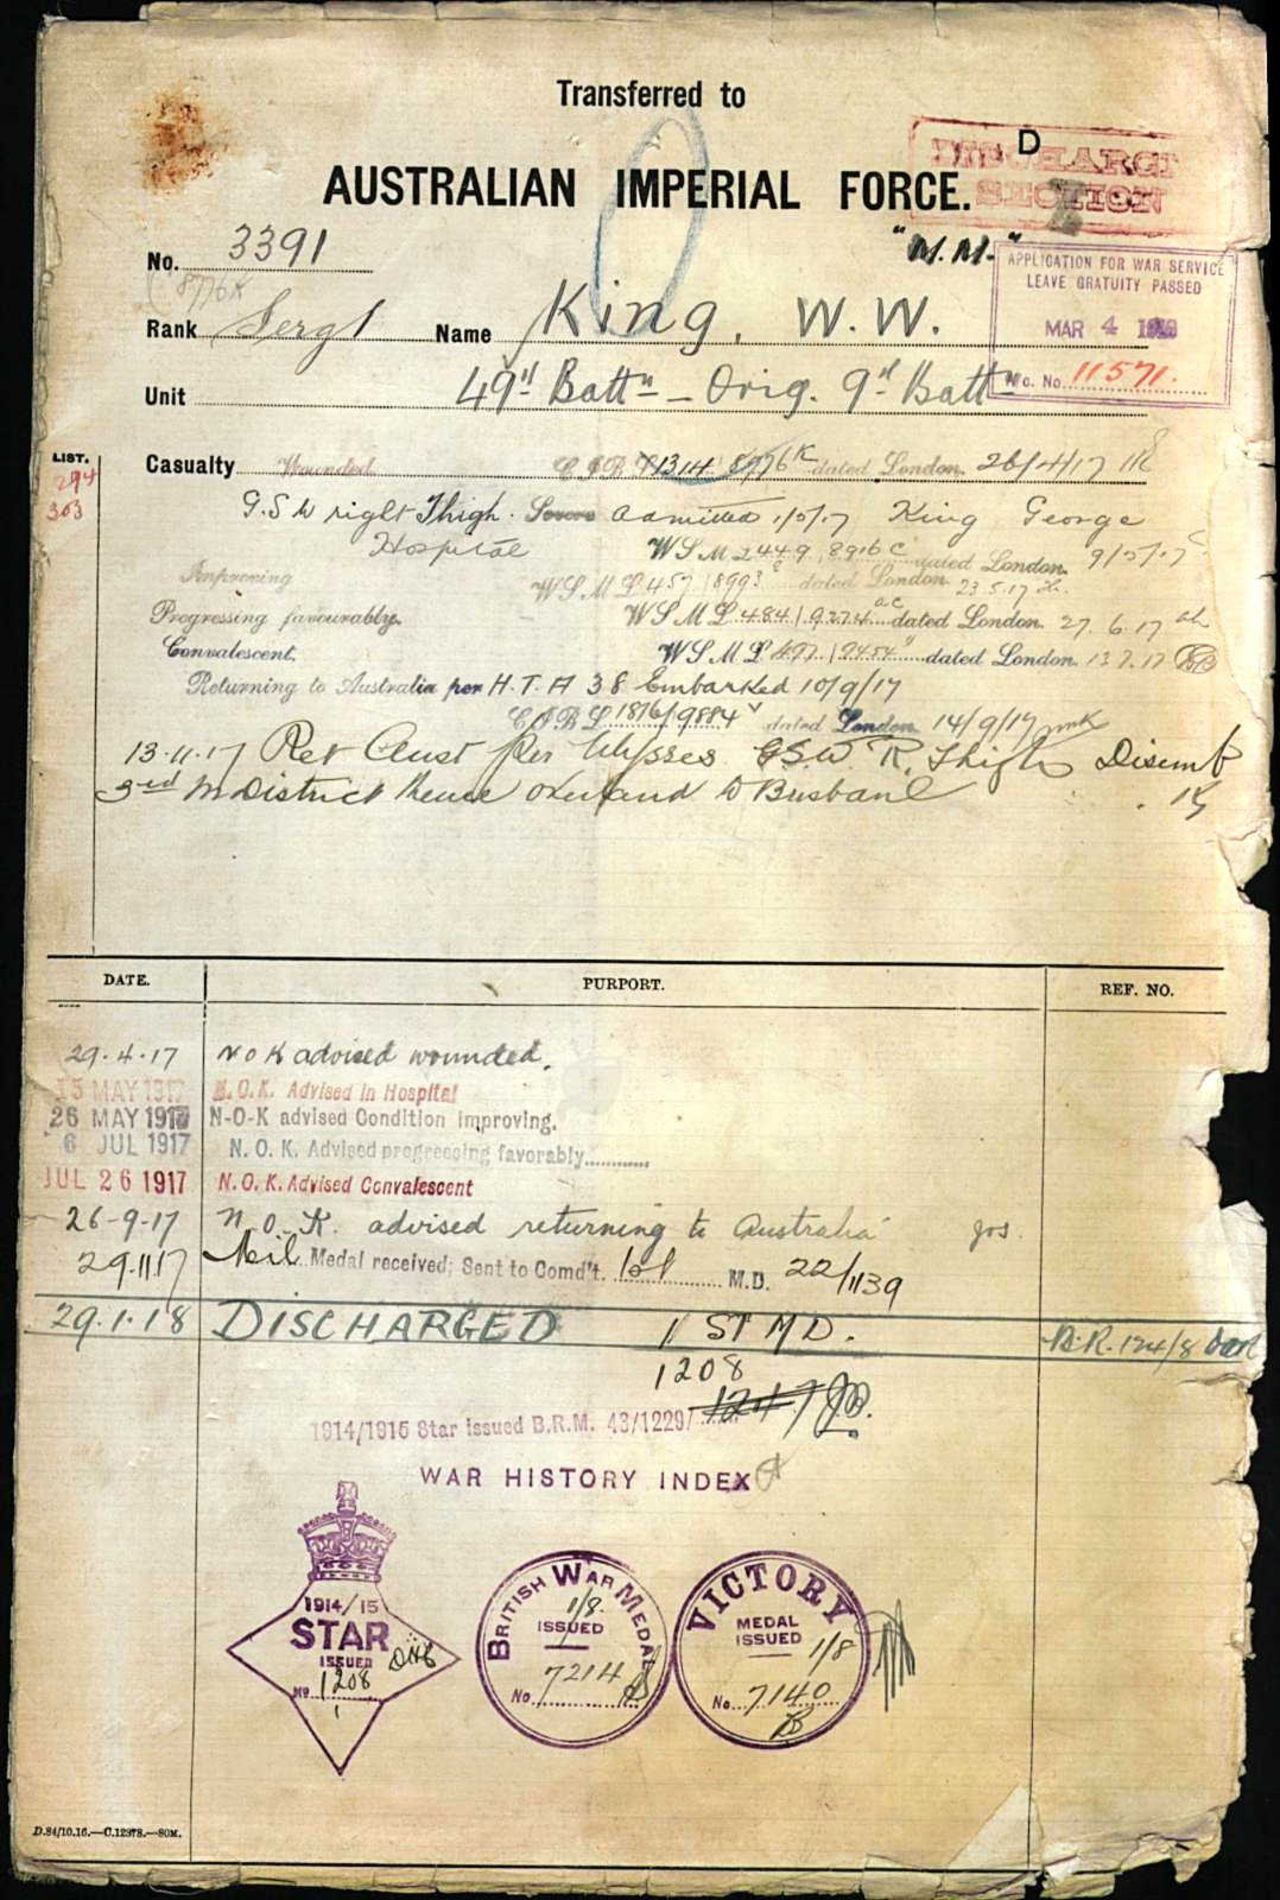 Transferred to
D
DISCHARGE
SECTION
AUSTRALIAN IMPERIAL FORCE.
"M.M."
No. 3391
8776K
APPLICATION FOR WAR SERVICE
LEAVE GRATUITY PASSED
MAR 4
No. 11571.
Rank Sergt Name King, W.W.
Unit 49th Battn - Orig. 9th Battn
LIST.
294
303
Casualty Wounded dated London. 26/4/17
G.S.W right Thigh. Severe admitted 1/5/17 King George
Hospital WSM 2449 8916 C dated London. 9/5/17
Improving WSML 457 8993 dated London 23.5.17
Progressing favourably. WSML 484 9274 ac dated London. 27.6.17
Convalescent. WSML dated London. 13.7.17
Returning to Australia per H.T. A 38 Embarked 10/9/17
1816/9884 dated London 14/9/17
13.11.17 Ret Aust per Ulysses GSW. R. Thigh Disemb
3rd M District thence overland to Brisbane
DATE. PURPORT. REF. NO.
29.4.17 NOK advised wounded.
15 MAY 1917 N.O.K. Advised in Hospital
26 MAY 1917 N-O-K advised Condition Improving.
6 JUL 1917 N.O.K. Advised progressing favorably
JUL 26 1917 N.O.K. Advised Convalescent
26-9-17 N.O.K. advised returning to Australia
29.11.17 Mil Medal received; Sent to Comd't. 1st M.D. 22/1139
29.1.18 DISCHARGED 1ST M D. 
1208
1914/1915 Star Issued B.R.M. 43/1229/
WAR HISTORY INDEX
1914/15
STAR
ISSUED
No 1208
BRITISH WAR MEDAL
1/8.
ISSUED
No. 7214
VICTORY
MEDAL
ISSUED
1/8
No. 7140
D.84/10.16.—C.12878.—80M.